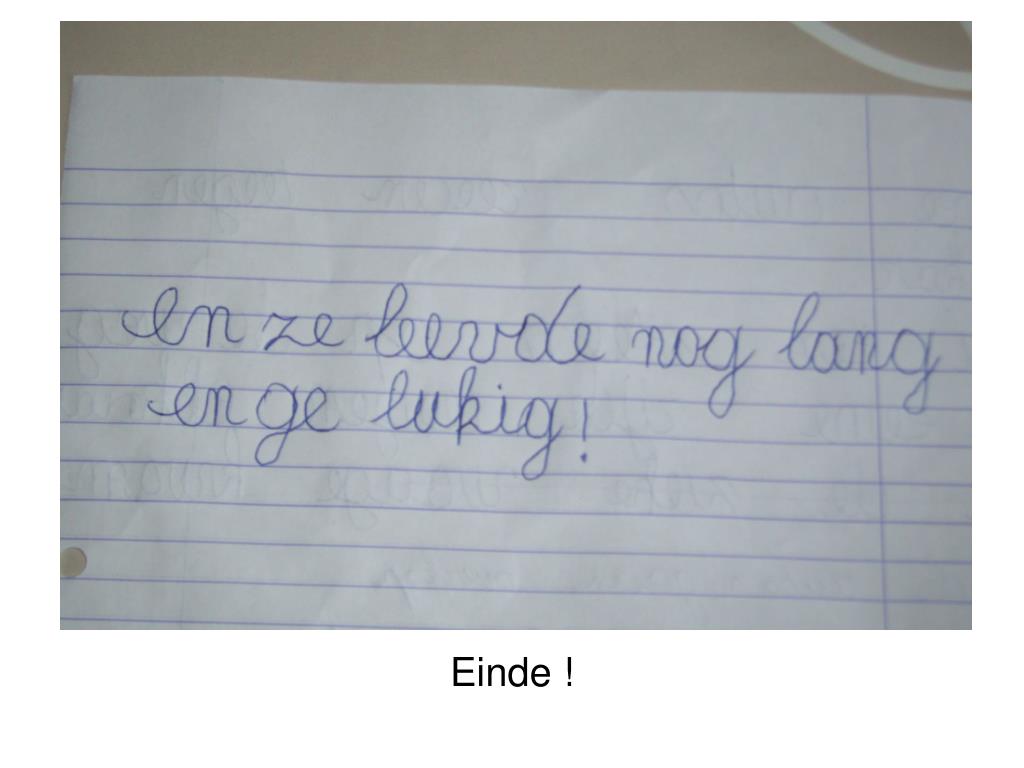 en ze leevde nog lang
en ge lukig!
Einde !